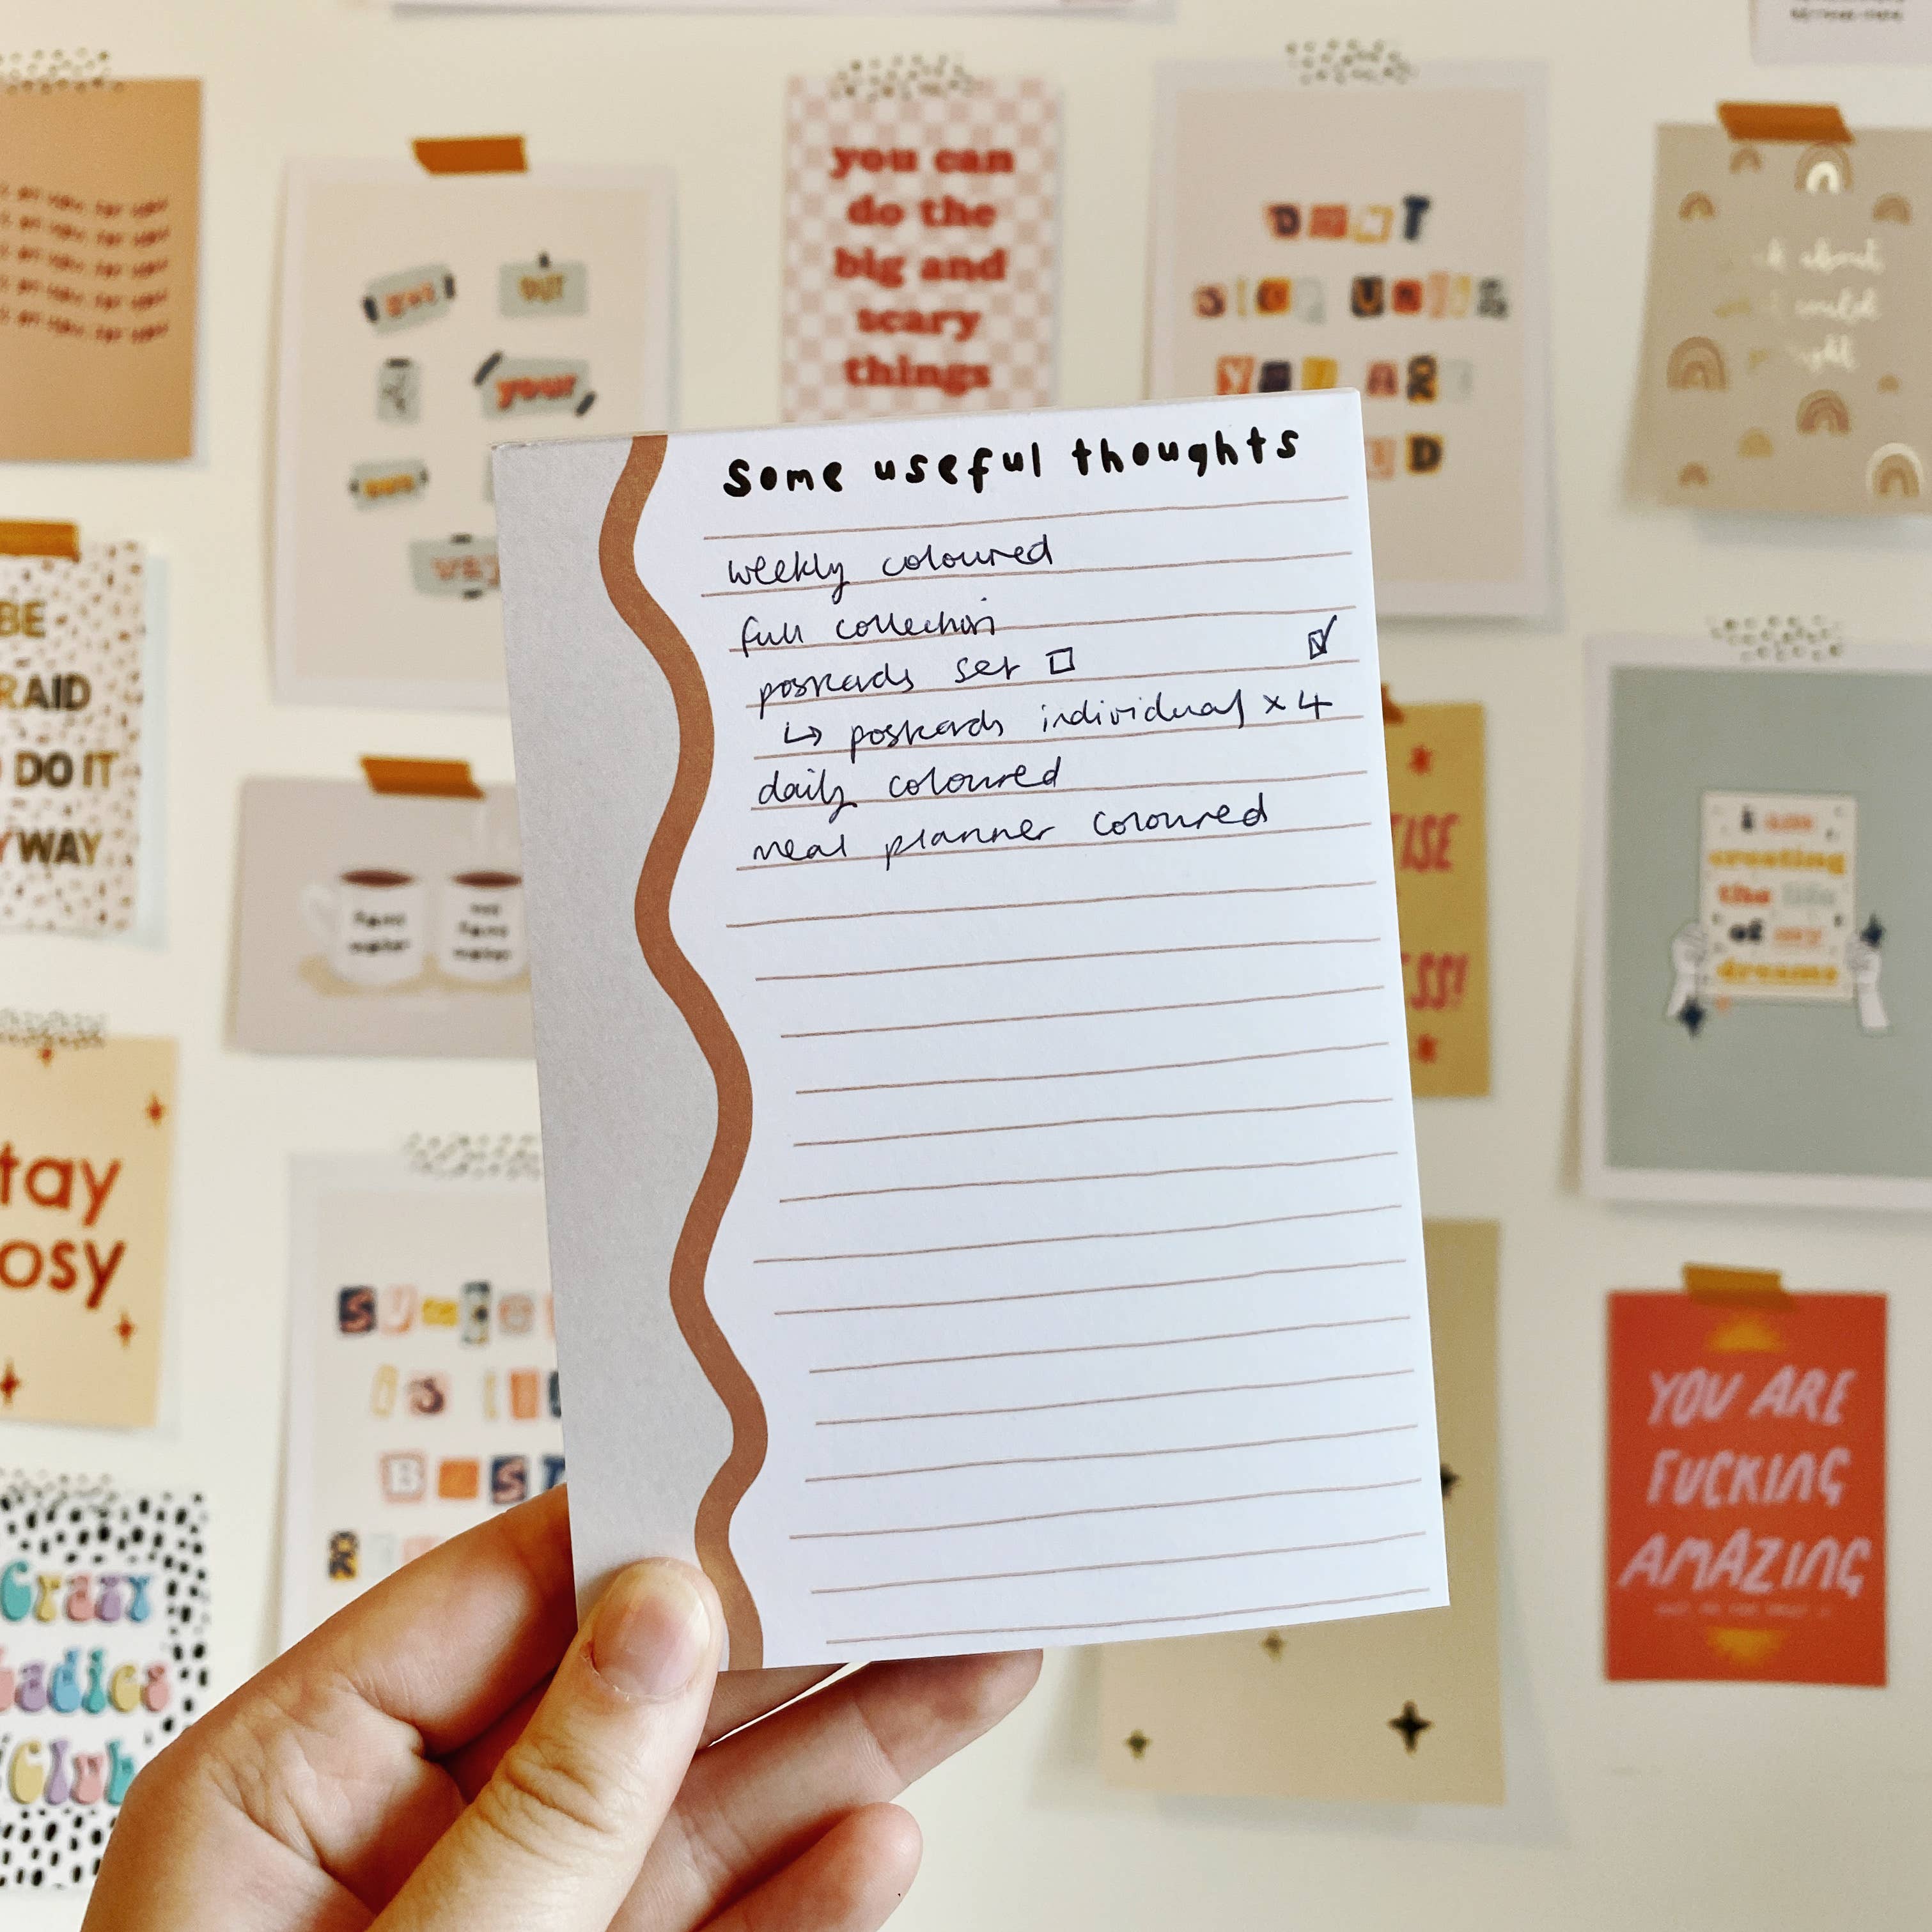 some useful thoughts
weekly coloured
full collection
postcards set ☐ ☑
↳ postcards individual x 4
daily coloured
meal planner coloured
you can
do the
big and
scary
things
OUT
your
BE
RAID
DO IT
YWAY
tay
osy
Crazy
Ladies
Club
i am
creating
the life
of my
dreams
ISE
SS!
YOU ARE
FUCKING
AMAZING